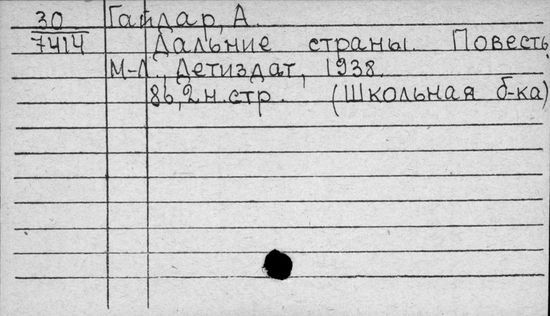 30 Гайдар, А.
7414 Дальние страны. Повесть
М-Л., Детиздат, 1938.
86, 2 н. стр. (Школьная б-ка)